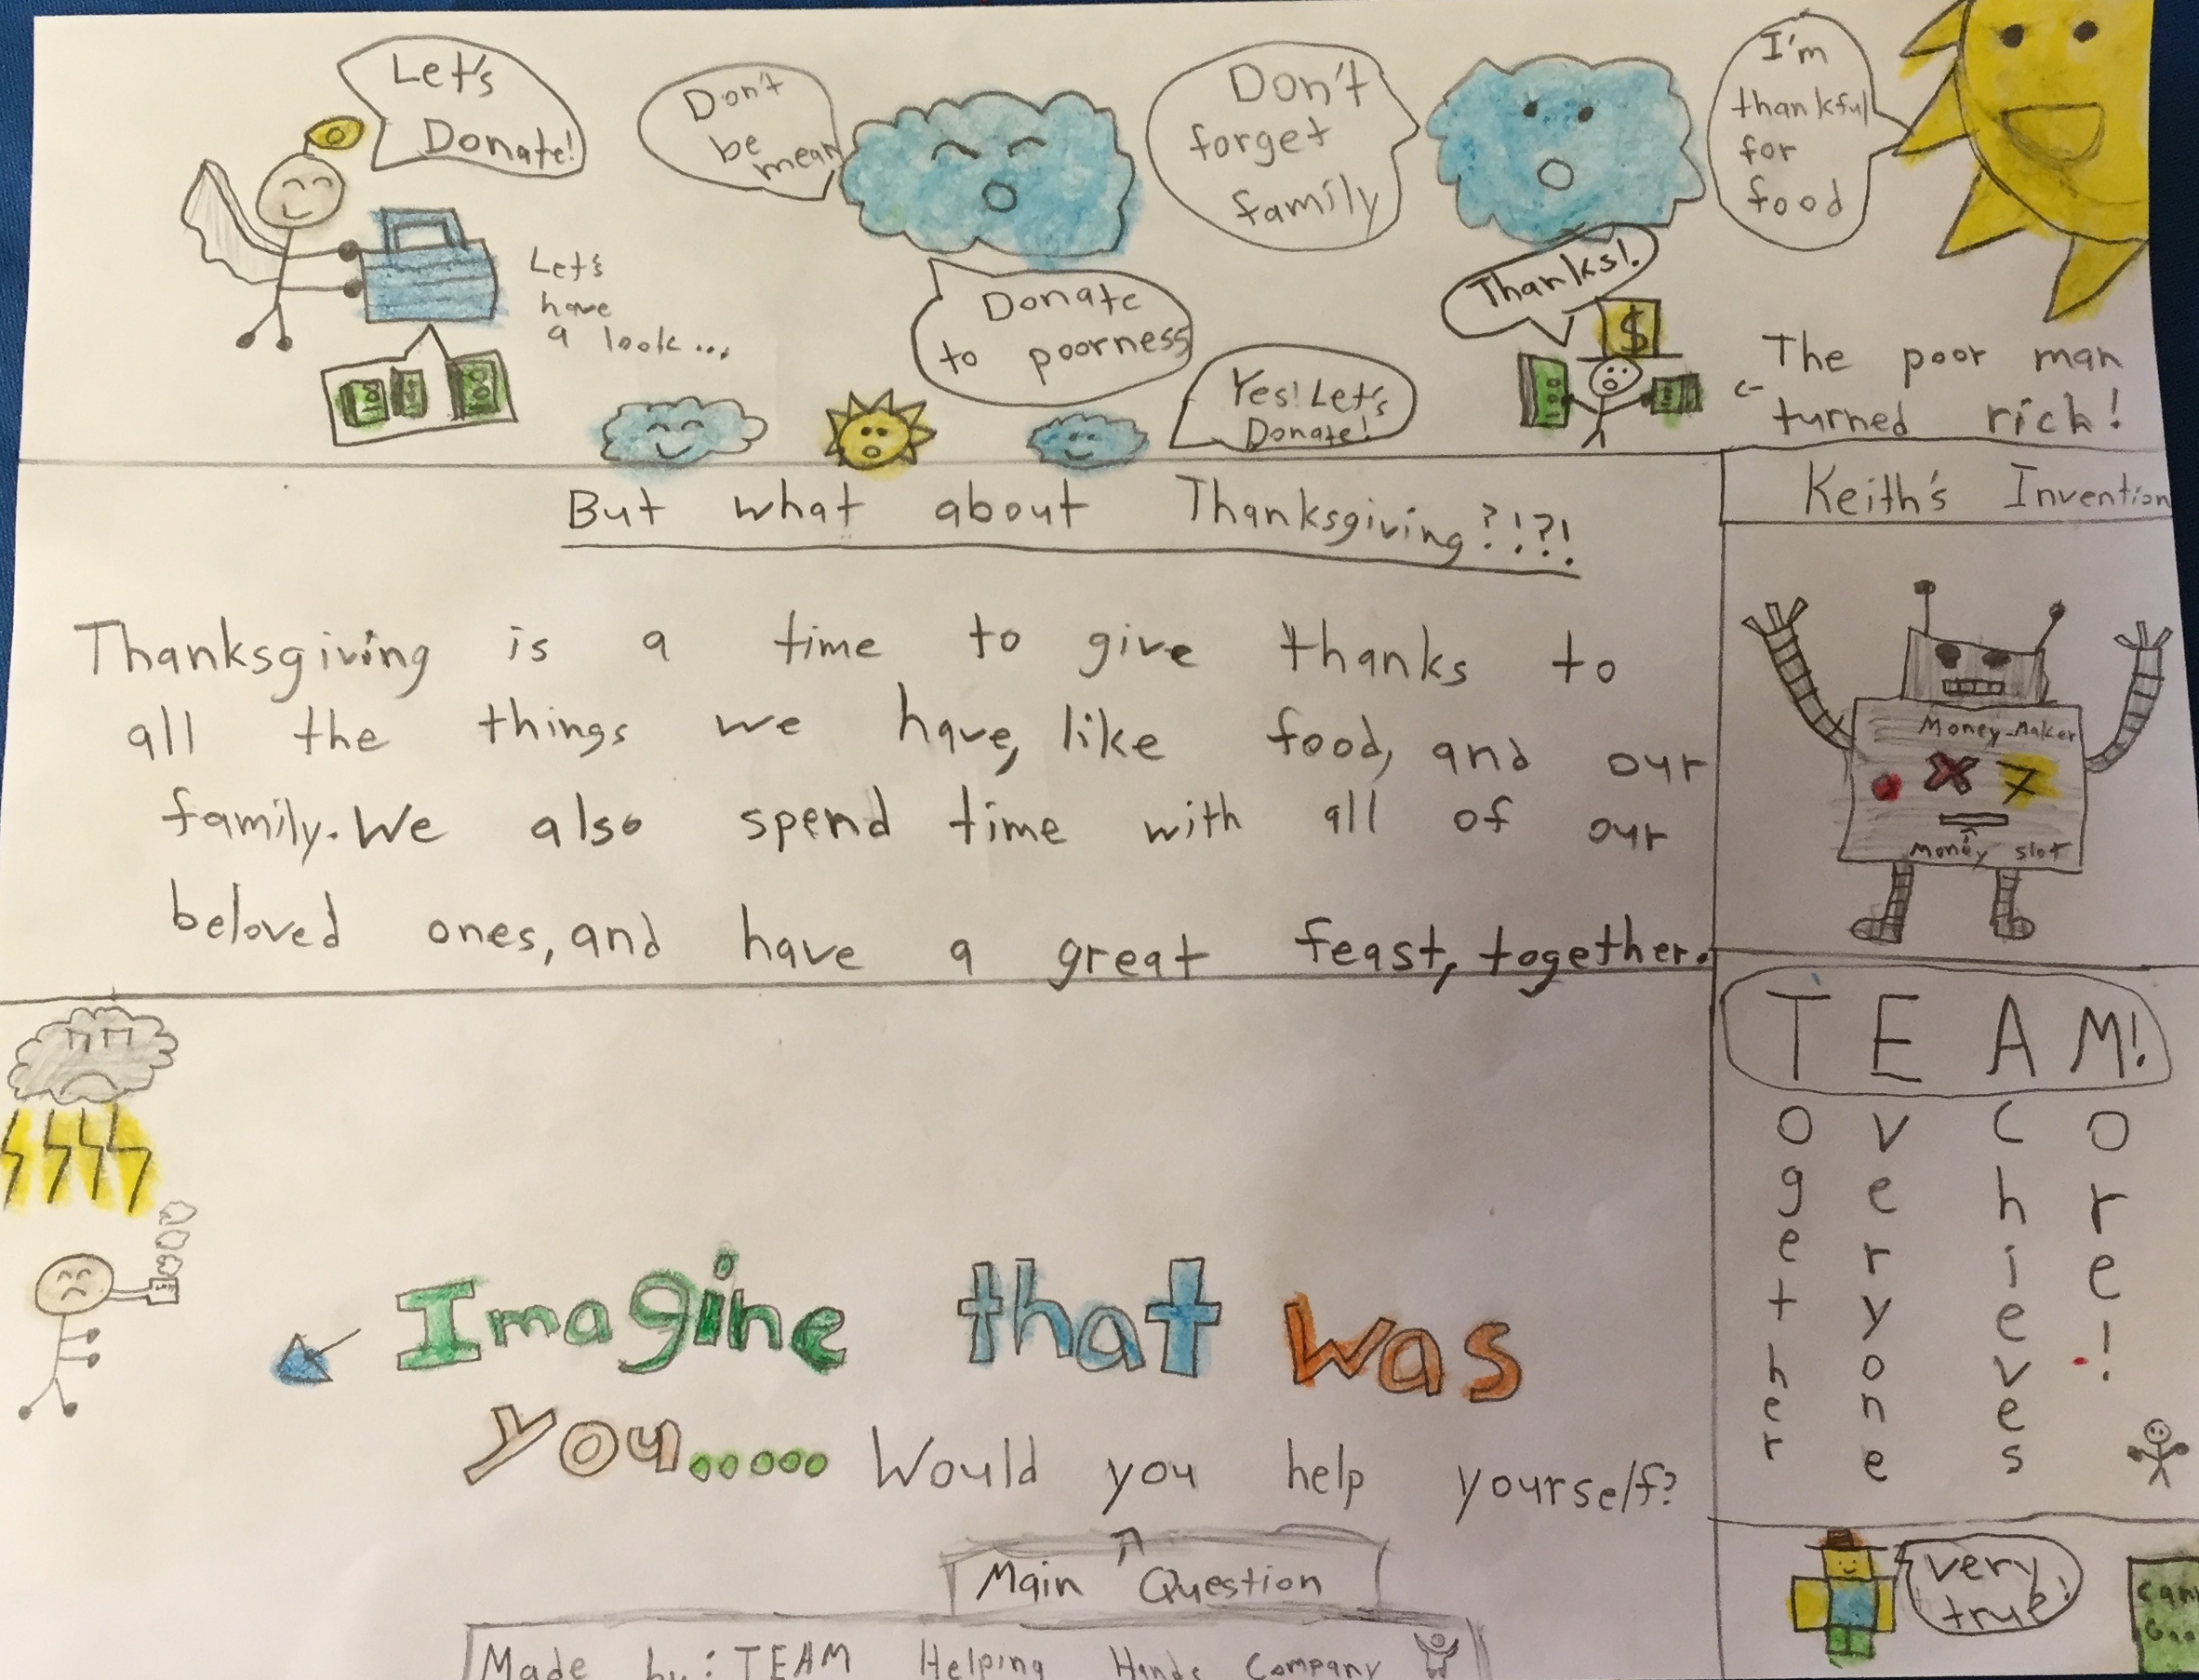 Let's
Donate!
Don't
be
mean
Don't
forget
family
I'm
thankful
for
food
Let's
have
a look...
Donate
to poorness
Thanks!
$
Yes! Let's
Donate!
The poor man
turned rich!
But what about Thanksgiving?!?!
Keith's Invention
Thanksgiving is a time to give thanks to
all the things we have, like food, and our
family. We also spend time with all of our
beloved ones, and have a great feast, together.
Money-Maker
Money slot
TEAM!
Together
Everyone
Achieves
More!
Imagine that was
you..... Would you help yourself?
Main Question
Made by: TEAM Helping Hands Company
very
true!